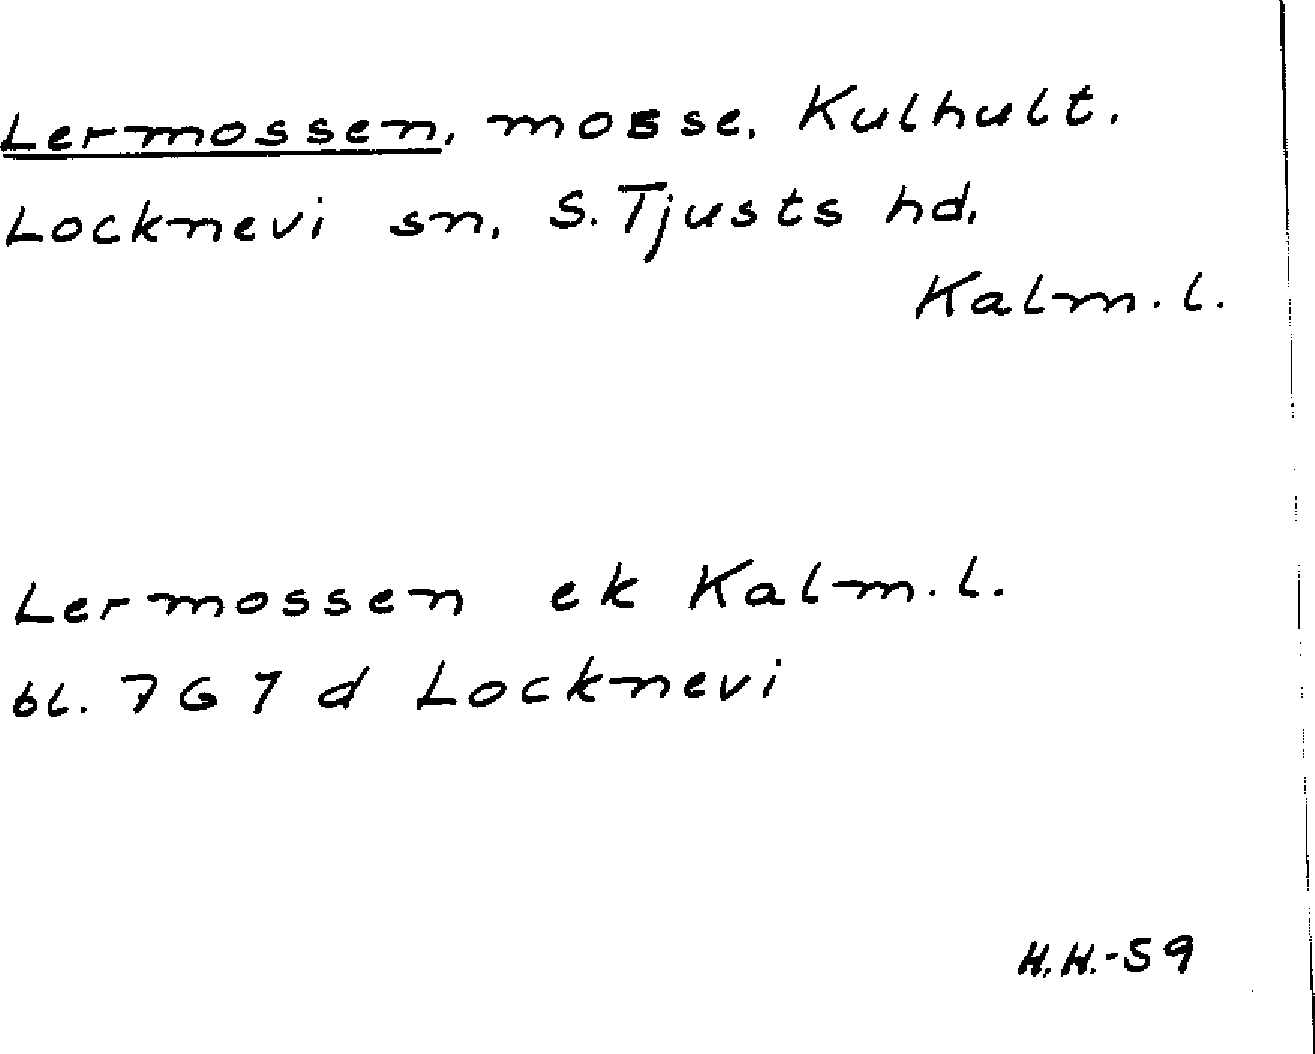 Lermossen, mosse, Kulhult.
Locknevi sn, S. Tjusts hd,
Kalm. l.
Lermossen ek Kalm. l.
bl. 7 G 7 d Locknevi
H.H.-59